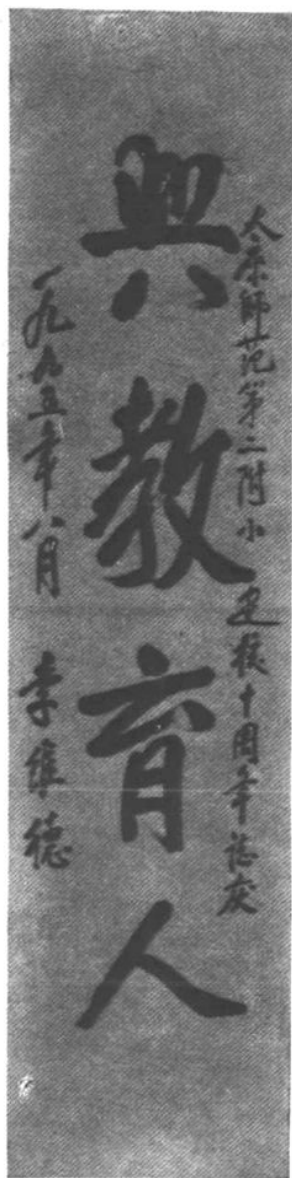 太原師范第二附小 建校十周年誌慶
興教育人
一九九五年八月 李維德